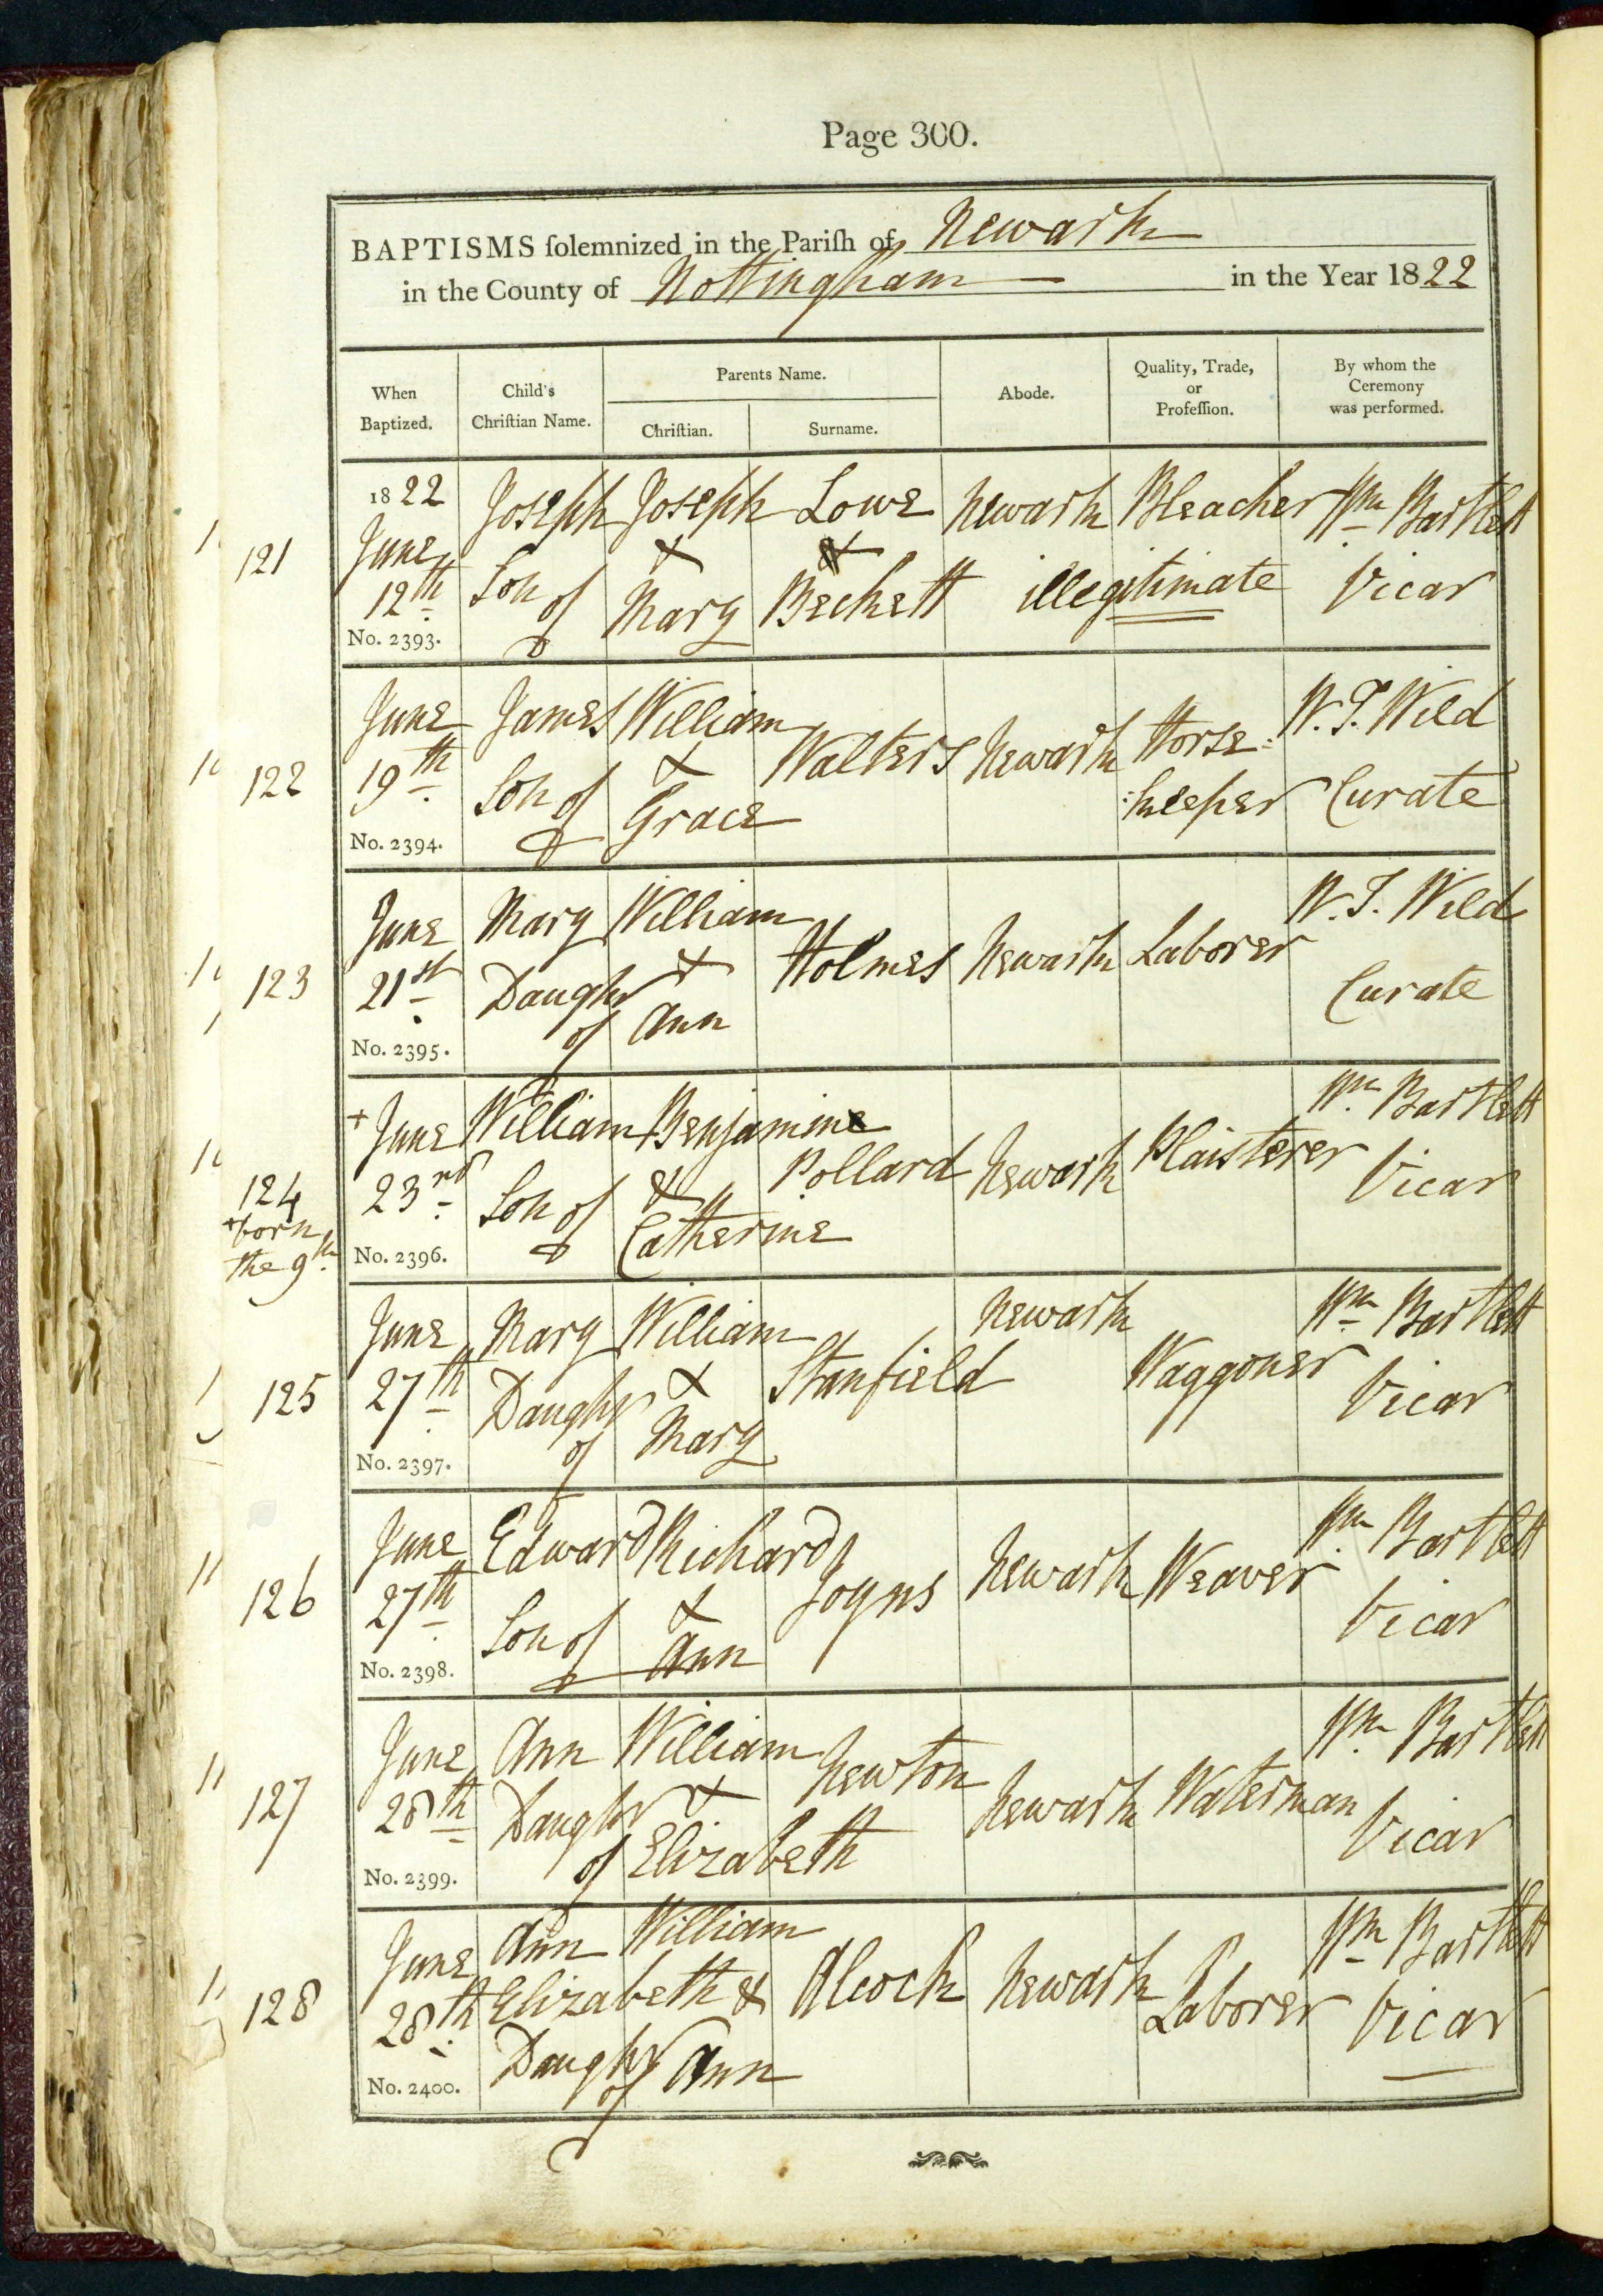 Page 300.
BAPTISMS ſolemnized in the Pariſh of Newark
in the County of Nottingham in the Year 1822
When Baptized.
Child's Chriſtian Name.
Parents Name.
Chriſtian.
Surname.
Abode.
Quality, Trade, or Profeſſion.
By whom the Ceremony was performed.
121
1822 Joseph Joseph Lowe Newark Bleacher Wm Bartlett
June & &
12th Son of Mary Beckett illegitimate Vicar
No. 2393.
122
June James William W. T. Wild
19th Son of & Walters Newark Horse=
Grace :keeper Curate
No. 2394.
123
June Mary William W. T. Wild
21st Daughr & Holmes Newark Laborer
of Ann Curate
No. 2395.
124
+born
the 9th
+ June William Benjamine Wm Bartlett
23rd Son of & Pollard Newark Plaisterer Vicar
Catherine
No. 2396.
125
June Mary William Newark Wm Bartlett
27th Daughr & Stanfield Waggoner Vicar
of Mary
No. 2397.
126
June Edward Richard Wm Bartlett
27th Son of & Joyns Newark Weaver Vicar
Ann
No. 2398.
127
June Ann William Newton Wm Bartlett
28th Daughr & Newark Waterman Vicar
of Elizabeth
No. 2399.
128
June Ann William Wm Bartlett
28th Elizabeth & Alcock Newark Laborer Vicar
Daughr of Ann
No. 2400.